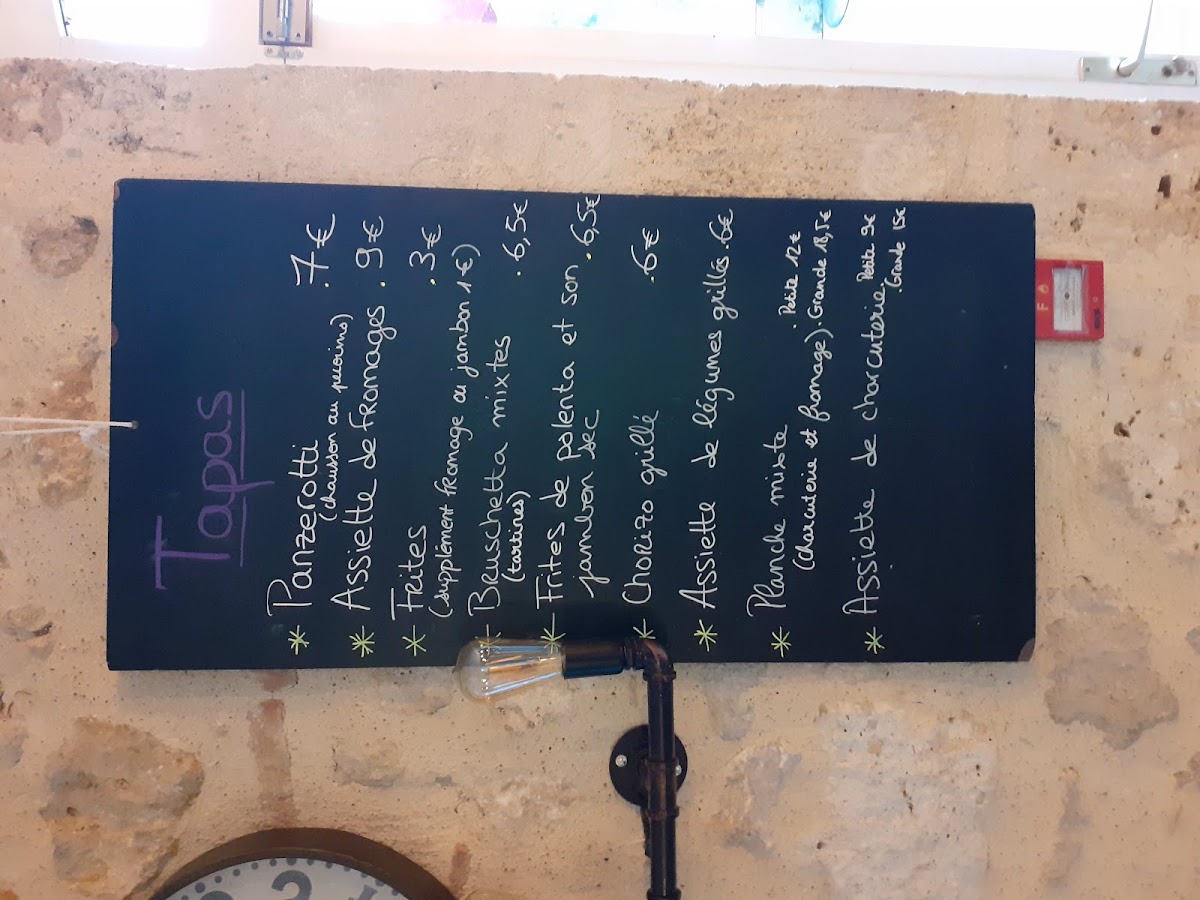 Tapas
* Panzerotti . 7€
(chausson au puroinu)
* Assiette de fromages . 9€
* Frites . 3€
(supplément fromage ou jambon 1€)
* Bruschetta mixtes . 6,5€
(tartines)
* Frites de polenta et son . 6,5€
jambon sec
* Chorizo grillé . 6€
* Assiette de légumes grillés . 6€
* Planche mixte . Petite 12€
(charcuterie et fromage) . Grande 18,5€
* Assiette de charcuterie . Petite 9€
. Grande 15€
2